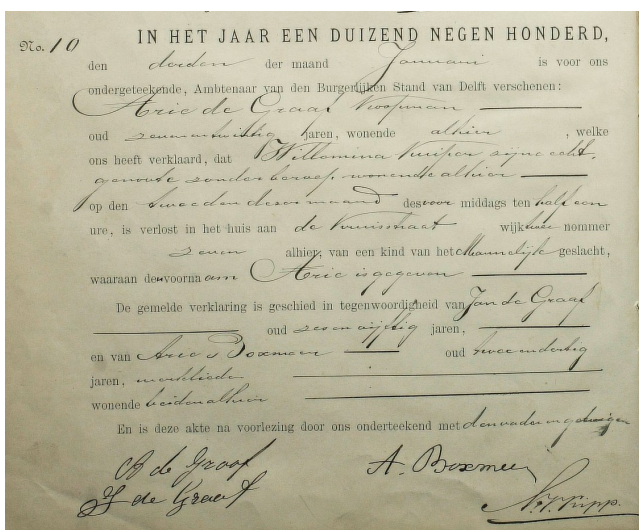 No. 10 IN HET JAAR EEN DUIZEND NEGEN HONDERD,
den derden der maand Januari is voor ons
ondergeteekende, Ambtenaar van den Burgerlijken Stand van Delft verschenen:
Arie de Graaf Koopman
oud zevenentwintig jaren, wonende alhier, welke
ons heeft verklaard, dat Willemina Kuiper zijne echt-
genoote zonder beroep wonende alhier
op den tweeden dezer maand des voor middags ten half een
ure, is verlost in het huis aan de Kruisstraat wijk twee nommer
zeven alhier, van een kind van het Mannelijk geslacht,
waaraan de voornaam Arie is gegeven
De gemelde verklaring is geschied in tegenwoordigheid van Jan de Graaf
oud zesenvijftig jaren,
en van Arie Boxmeer oud tweeendertig
jaren, werklieden
wonende beiden alhier
En is deze akte na voorlezing door ons onderteekend met den vader en getuigen
A de Graaf A. Boxmeer
J de Graaf